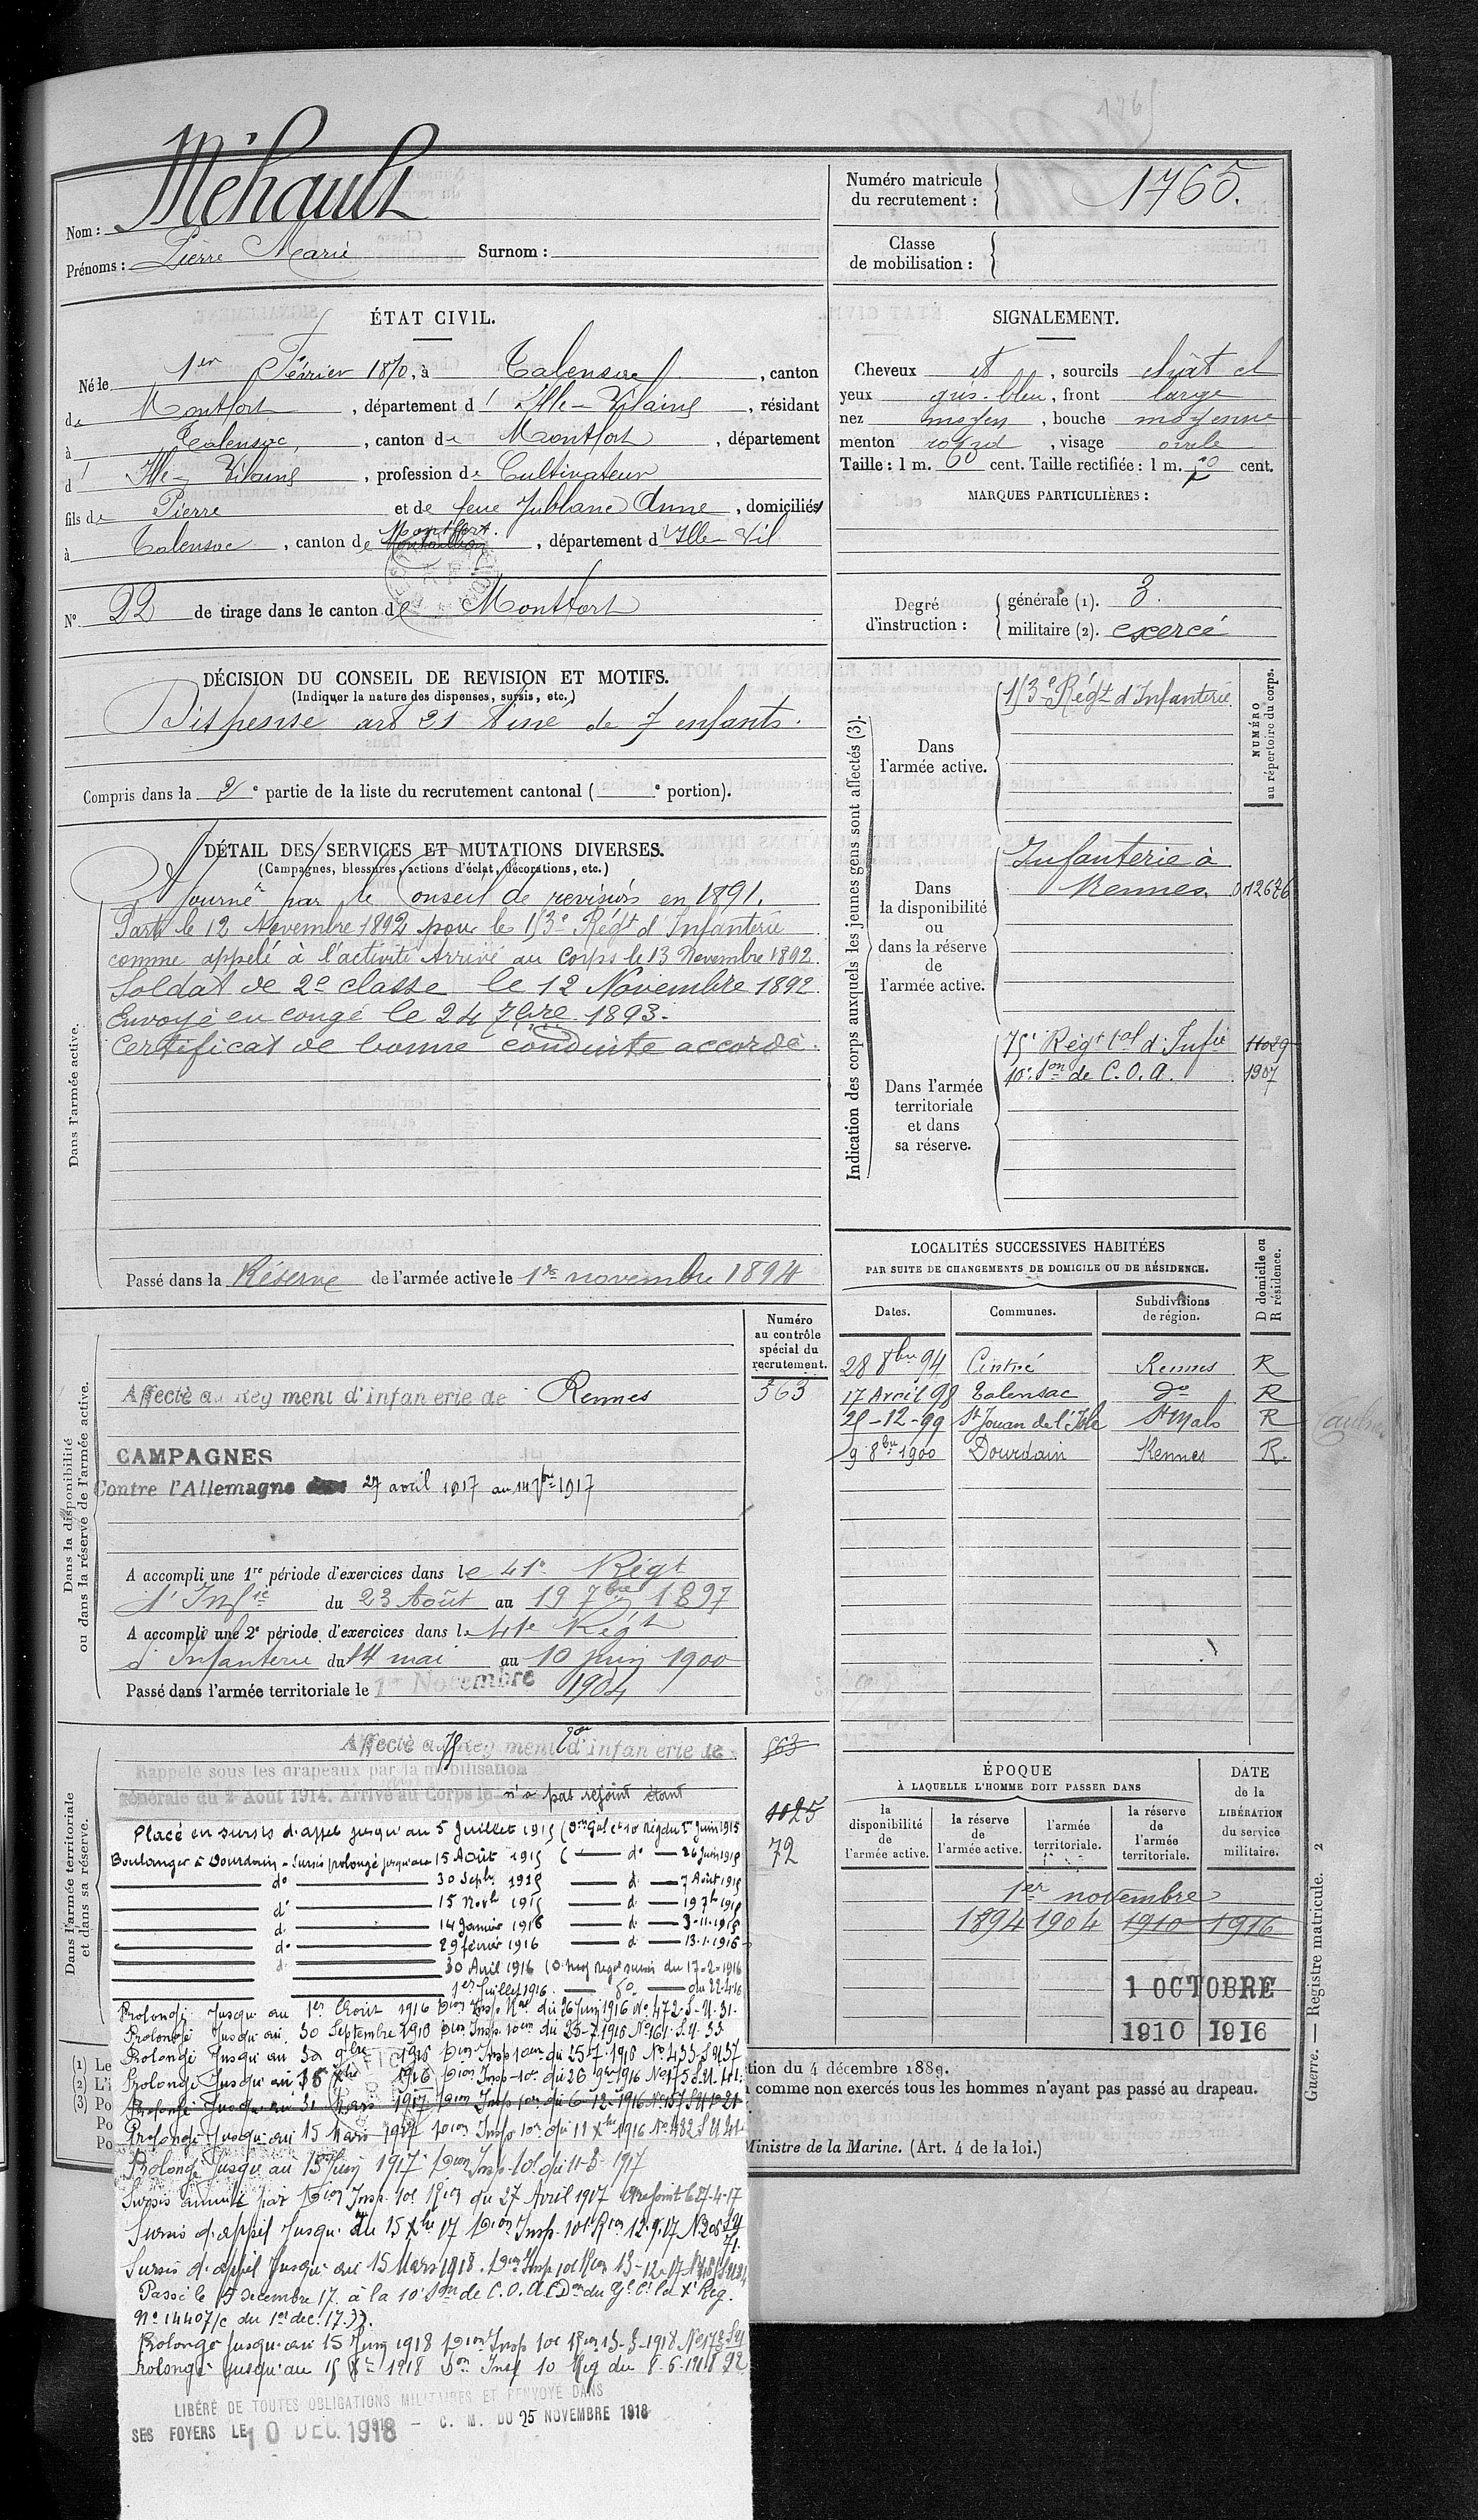 1765
Méhault
Nom :
Prénoms : Pierre Marie Surnom :
Numéro matricule du recrutement : 1765.
Classe de mobilisation :
ÉTAT CIVIL.
Né le 1er Février 1870, à Talensac, canton
de Montfort, département d'Ille-Vilaine, résidant
à Talensac, canton de Montfort, département
d'Ille-Vilaine, profession de Cultivateur
fils de Pierre et de feue Jublanc Anne, domiciliés
à Talensac, canton de Montfort. département d'Ille-Vil
N° 22 de tirage dans le canton de Montfort
SIGNALEMENT.
Cheveux et, sourcils chât cl
yeux gris-bleu, front large
nez moyen, bouche moyenne
menton rond, visage ovale
Taille : 1 m. 60 cent. Taille rectifiée : 1 m. cent.
MARQUES PARTICULIÈRES :
Degré d'instruction : générale (1). 3.
militaire (2). exercé
DÉCISION DU CONSEIL DE REVISION ET MOTIFS.
(Indiquer la nature des dispenses, sursis, etc.)
Dispensé art 21 aîné de 7 enfants.
Compris dans la 2e partie de la liste du recrutement cantonal ( e portion).
DÉTAIL DES SERVICES ET MUTATIONS DIVERSES.
(Campagnes, blessures, actions d'éclat, décorations, etc.)
Dans l'armée active.
Ajourné par le Conseil de revision en 1891.
Parti le 12 Novembre 1892 pour le 113e Régt d'Infanterie
comme appelé à l'activité Arrivé au Corps le 13 Novembre 1892.
Soldat de 2e classe le 12 Novembre 1892.
Envoyé en congé le 24 7bre 1893.
Certificat de bonne conduite accordé.
Passé dans la Réserve de l'armée active le 1er novembre 1894
Indication des corps auxquels les jeunes gens sont affectés (3).
NUMÉRO au répertoire du corps.
Dans l'armée active.
113e Régt d'Infanterie
Dans la disponibilité ou dans la réserve de l'armée active.
Infanterie à
Rennes. 012676
Dans l'armée territoriale et dans sa réserve.
75e Régt tal d'Infie 11029
10e Son de C.O.A. 1907
LOCALITÉS SUCCESSIVES HABITÉES
PAR SUITE DE CHANGEMENTS DE DOMICILE OU DE RÉSIDENCE.
Dates. Communes. Subdivisions de région. D domicile ou R résidence.
28 8bre 94 Cintré Rennes R
17 Avril 98 Talensac do R
25-12-99 St Jouan de l'Isle St Malo R
9 8bre 1900 Dourdain Rennes R.
Dans la disponibilité ou dans la réserve de l'armée active.
Numéro au contrôle spécial du recrutement.
Affecté au Régiment d'infanterie de Rennes 363
CAMPAGNES
Contre l'Allemagne 27 avril 1917 au 14 7bre 1917
A accompli une 1re période d'exercices dans le 41e Régt
d'Infie du 23 Août au 19 7bre 1897
A accompli une 2e période d'exercices dans le 41e Régt
d'Infanterie du 14 mai au 10 juin 1900
Passé dans l'armée territoriale le 1er Novembre 1904
Dans l'armée territoriale et dans sa réserve.
Affecté au 75 Régiment d'infanterie de 563
Rappelé sous les drapeaux par la mobilisation
générale du 2 Aout 1914. Arrivé au Corps le n'a pas rejoint étant
1025
72
Placé en sursis d'appel jusqu'au 5 Juillet 1915
Boulanger à Dourdain - sursis prolongé jusqu'au 15 Août 1915 do 26 Juin 1915
do 30 Septbre 1915 do 7 Août 1915
do 15 Novbre 1915 do 19 7bre 1915
do 14 Janvier 1916 do 3-11-1915
do 29 février 1916 do 13-1-1916
do 30 Avril 1916 du 17-2-1916
1er Juillet 1916 do du 22-4-16
Prolongé jusqu'au 1er Août 1916 Don Insp. du 26 Juin 1916 No 472 S.U.31.
Prolongé jusqu'au 30 Septembre 1916 Don Insp. 10em du 25-7-1916 No 161. S.U. 33
Prolongé jusqu'au
Prolongé jusqu'au
Prolongé jusqu'au 31 Mars 1917 Don Insp 10em du 6-12-1916
Prolongé jusqu'au 15 Mars 1917 Don Insp 10em du 11 Xbre 1916 No 482 S.U.
Prolongé jusqu'au 15 Juin 1917 Don Insp. 10e du 11-3-1917
Sursis annulé par Don Insp. 10e Rion du 27 Avril 1917 A rejoint le 27-4-17
Sursis d'appel jusqu'au 15 Xbre 17 Don Insp. 10e Rion 12.9.17
Sursis d'appel jusqu'au 15 Mars 1918. Don Insp. 10e Rion 13-12-17
Passé le 15 décembre 17. à la 10e Son de C.O.A. Don du Gl Ct la Xe Rég.
No 14407/c du 1er dec. 17.
Prolongé jusqu'au 15 Juin 1918 Don Insp 10e Rion 13-3-1918
Prolongé jusqu'au 15 1918 Don Insp 10 Reg du 8-6-1918
LIBÉRÉ DE TOUTES OBLIGATIONS MILITAIRES ET RENVOYÉ DANS
SES FOYERS LE 10 DEC. 1918 - C. M. DU 25 NOVEMBRE 1918
ÉPOQUE
À LAQUELLE L'HOMME DOIT PASSER DANS
la disponibilité de l'armée active.
la réserve de l'armée active.
l'armée territoriale.
la réserve de l'armée territoriale.
DATE de la LIBÉRATION du service militaire.
1er novembre
1894 1904 1910 1916
1 OCTOBRE
1910 1916
(1) Le
(2) L'i
(3) Po
Po
Po
tion du 4 décembre 1889.
comme non exercés tous les hommes n'ayant pas passé au drapeau.
Ministre de la Marine. (Art. 4 de la loi.)
Guerre. — Registre matricule. 2